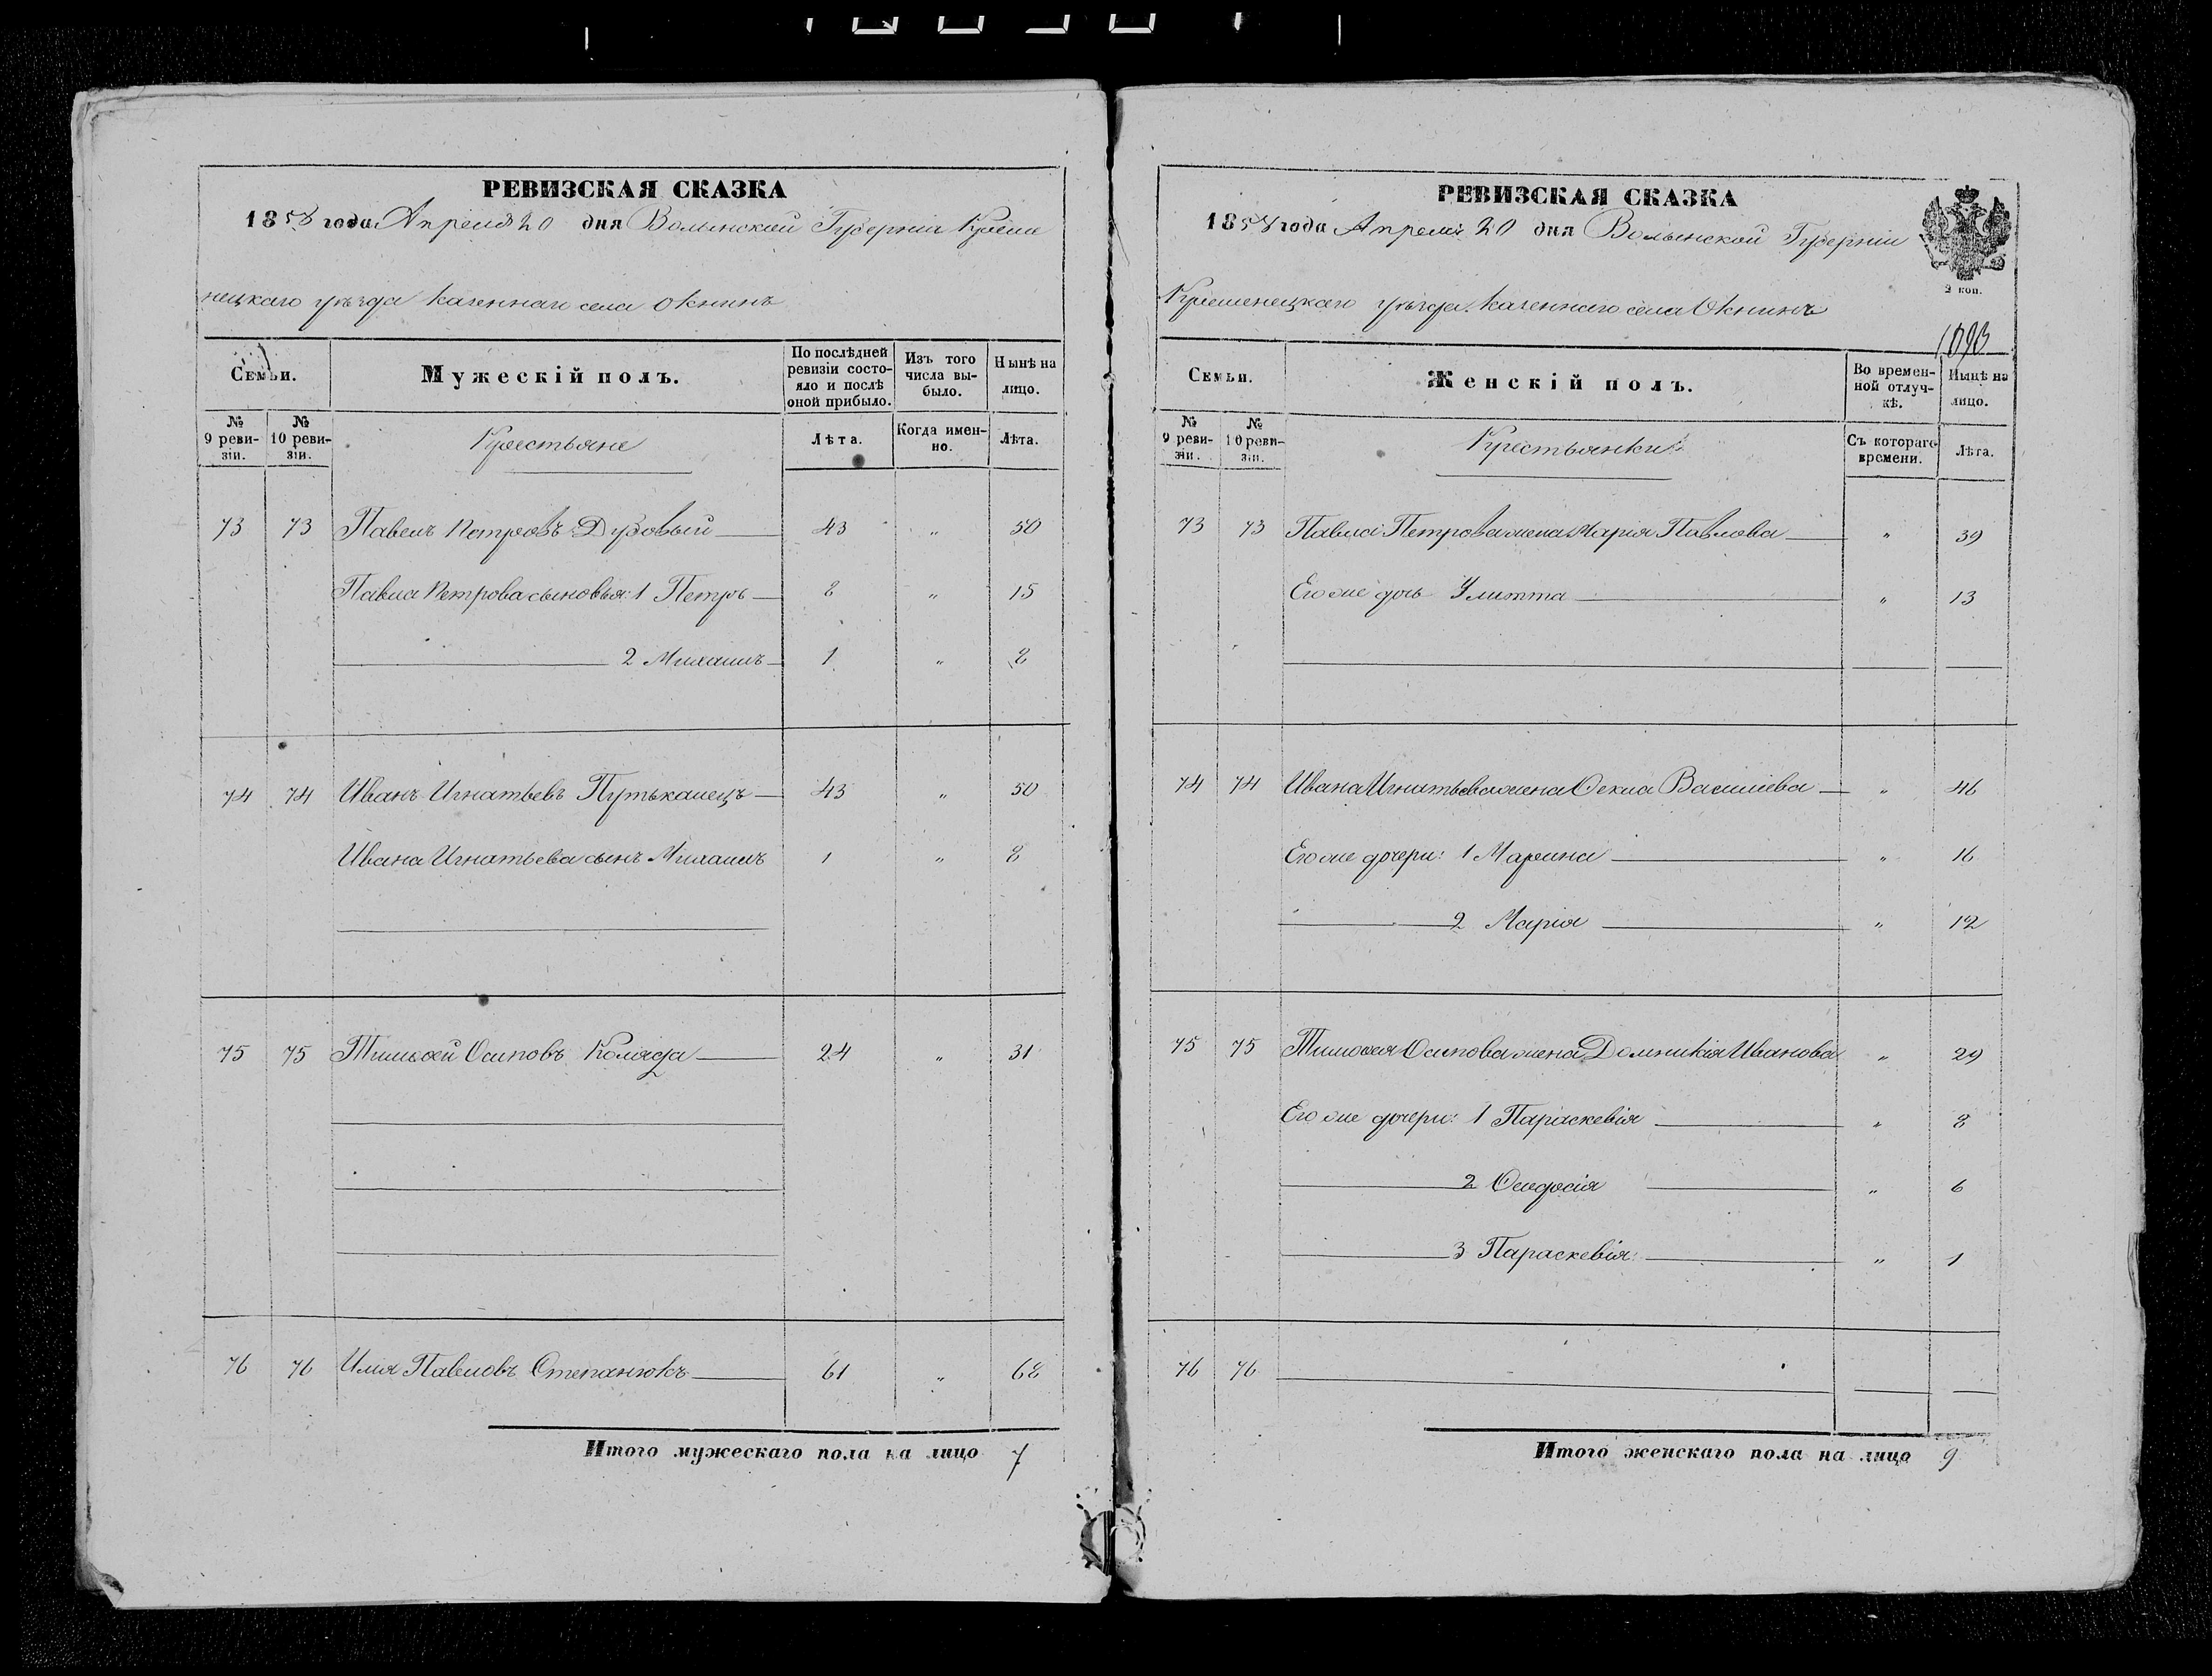 РЕВИЗСКАЯ СКАЗКА
1858 года Апреля 20 дня Волынской Губерніи Креме
нецкаго уѣзда казеннаго села Окнинъ
Семьи.
Мужескій полъ.
По послѣдней ревизіи состояло и послѣ оной прибыло.
Изъ того числа выбыло.
Нынѣ на лицо.
№ 9 ревизіи.
№ 10 ревизіи.
Крестьяне
Лѣта.
Когда именно.
Лѣта.
73 73 Павелъ Петровъ Дубовый 43 " 50
Павла Петрова сыновья: 1 Петръ 8 " 15
2 Михаилъ 1 " 8
74 74 Иванъ Игнатьевъ Путькалецъ 43 " 50
Ивана Игнатьева сынъ Михаилъ 1 " 8
75 75 Тимофей Осиповъ Коляда 24 " 31
76 76 Илія Павловъ Степанюкъ 61 " 68
Итого мужескаго пола на лицо 7
РЕВИЗСКАЯ СКАЗКА
1858 года Апреля 20 дня Волынской Губерніи
2 коп.
Кременецкаго уѣзда казеннаго села Окнинъ
Семьи.
Женскій полъ.
Во временной отлучкѣ.
Нынѣ на лицо.
№ 9 ревизіи.
№ 10 ревизіи.
Крестьянки
Съ котораго времени.
Лѣта.
73 73 Павла Петрова жена Марія Павлова " 39
Его же дочь Улитта " 13
74 74 Ивана Игнатьева жена Фекла Василіева " 46
Его же дочери: 1 Марина " 16
2 Марія " 12
75 75 Тимофея Осипова жена Домникія Иванова " 29
Его же дочери: 1 Параскевія " 8
2 Феодосія " 6
3 Параскевія " 1
76 76
Итого женскаго пола на лицо 9